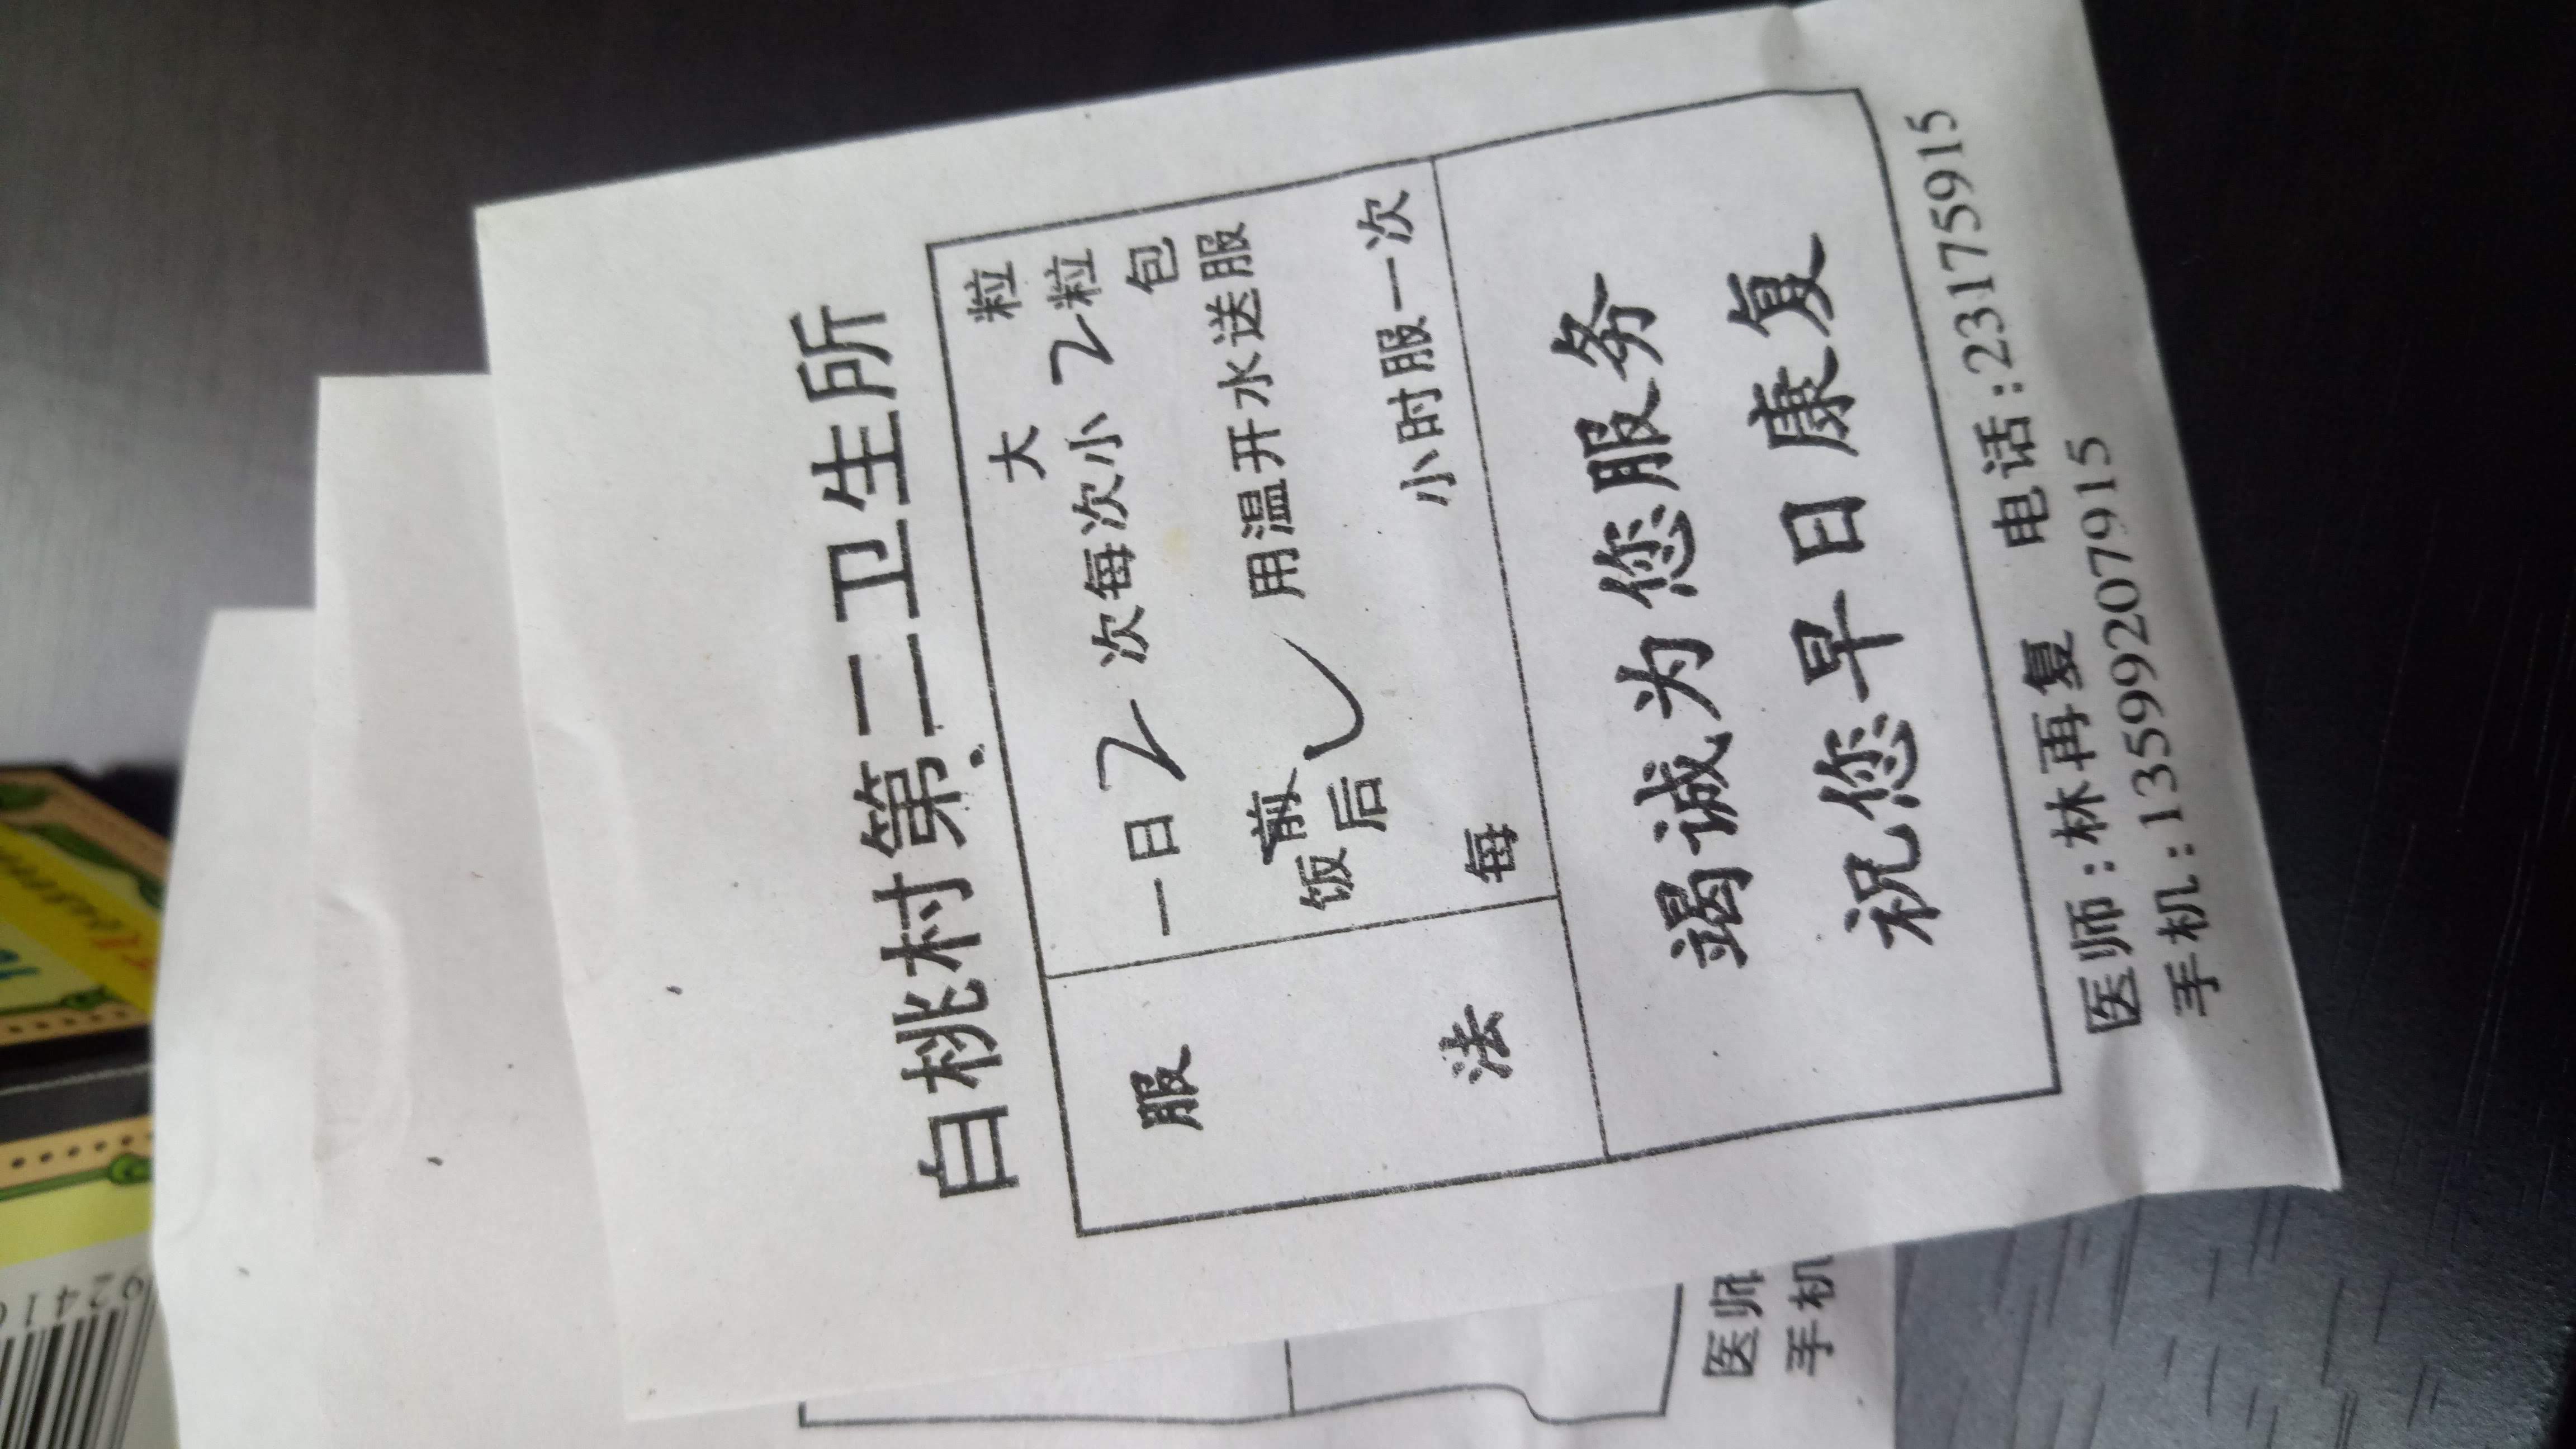 92410
白桃村第二卫生所
服法
大 粒
一日2次每次小2粒
包
饭前后✓ 用温开水送服
每 小时服一次
竭诚为您服务
祝您早日康复
医师:林再复 电话:23175915
手机:13599207915
医师
手机